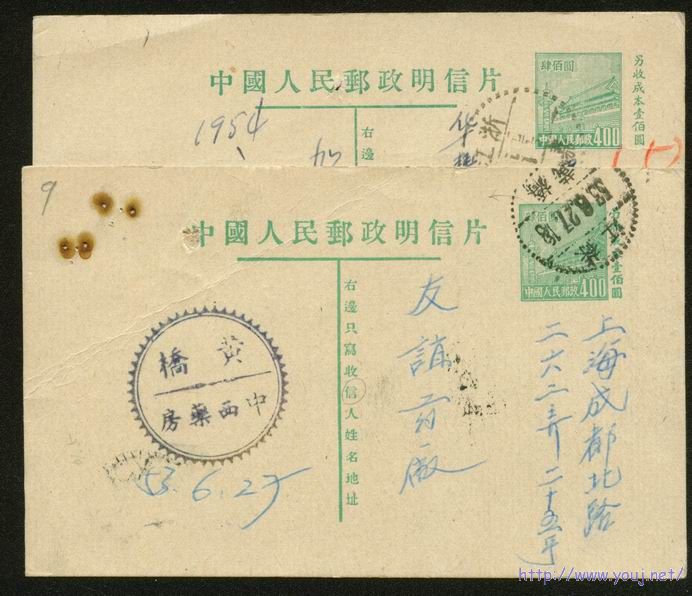 中國人民郵政明信片
肆佰圓
中國人民郵政 400
另收成本壹佰圓
1954
右邊
华
浙
9
中國人民郵政明信片
肆佰圓
中國人民郵政 400
壹佰圓
53.6.27.18
江蘇
右邊只寫收信人姓名地址
上海成都北路
二六二弄二十五号
友誼葯廠
黃橋
中西藥房
53.6.27
http://www.youj.net/